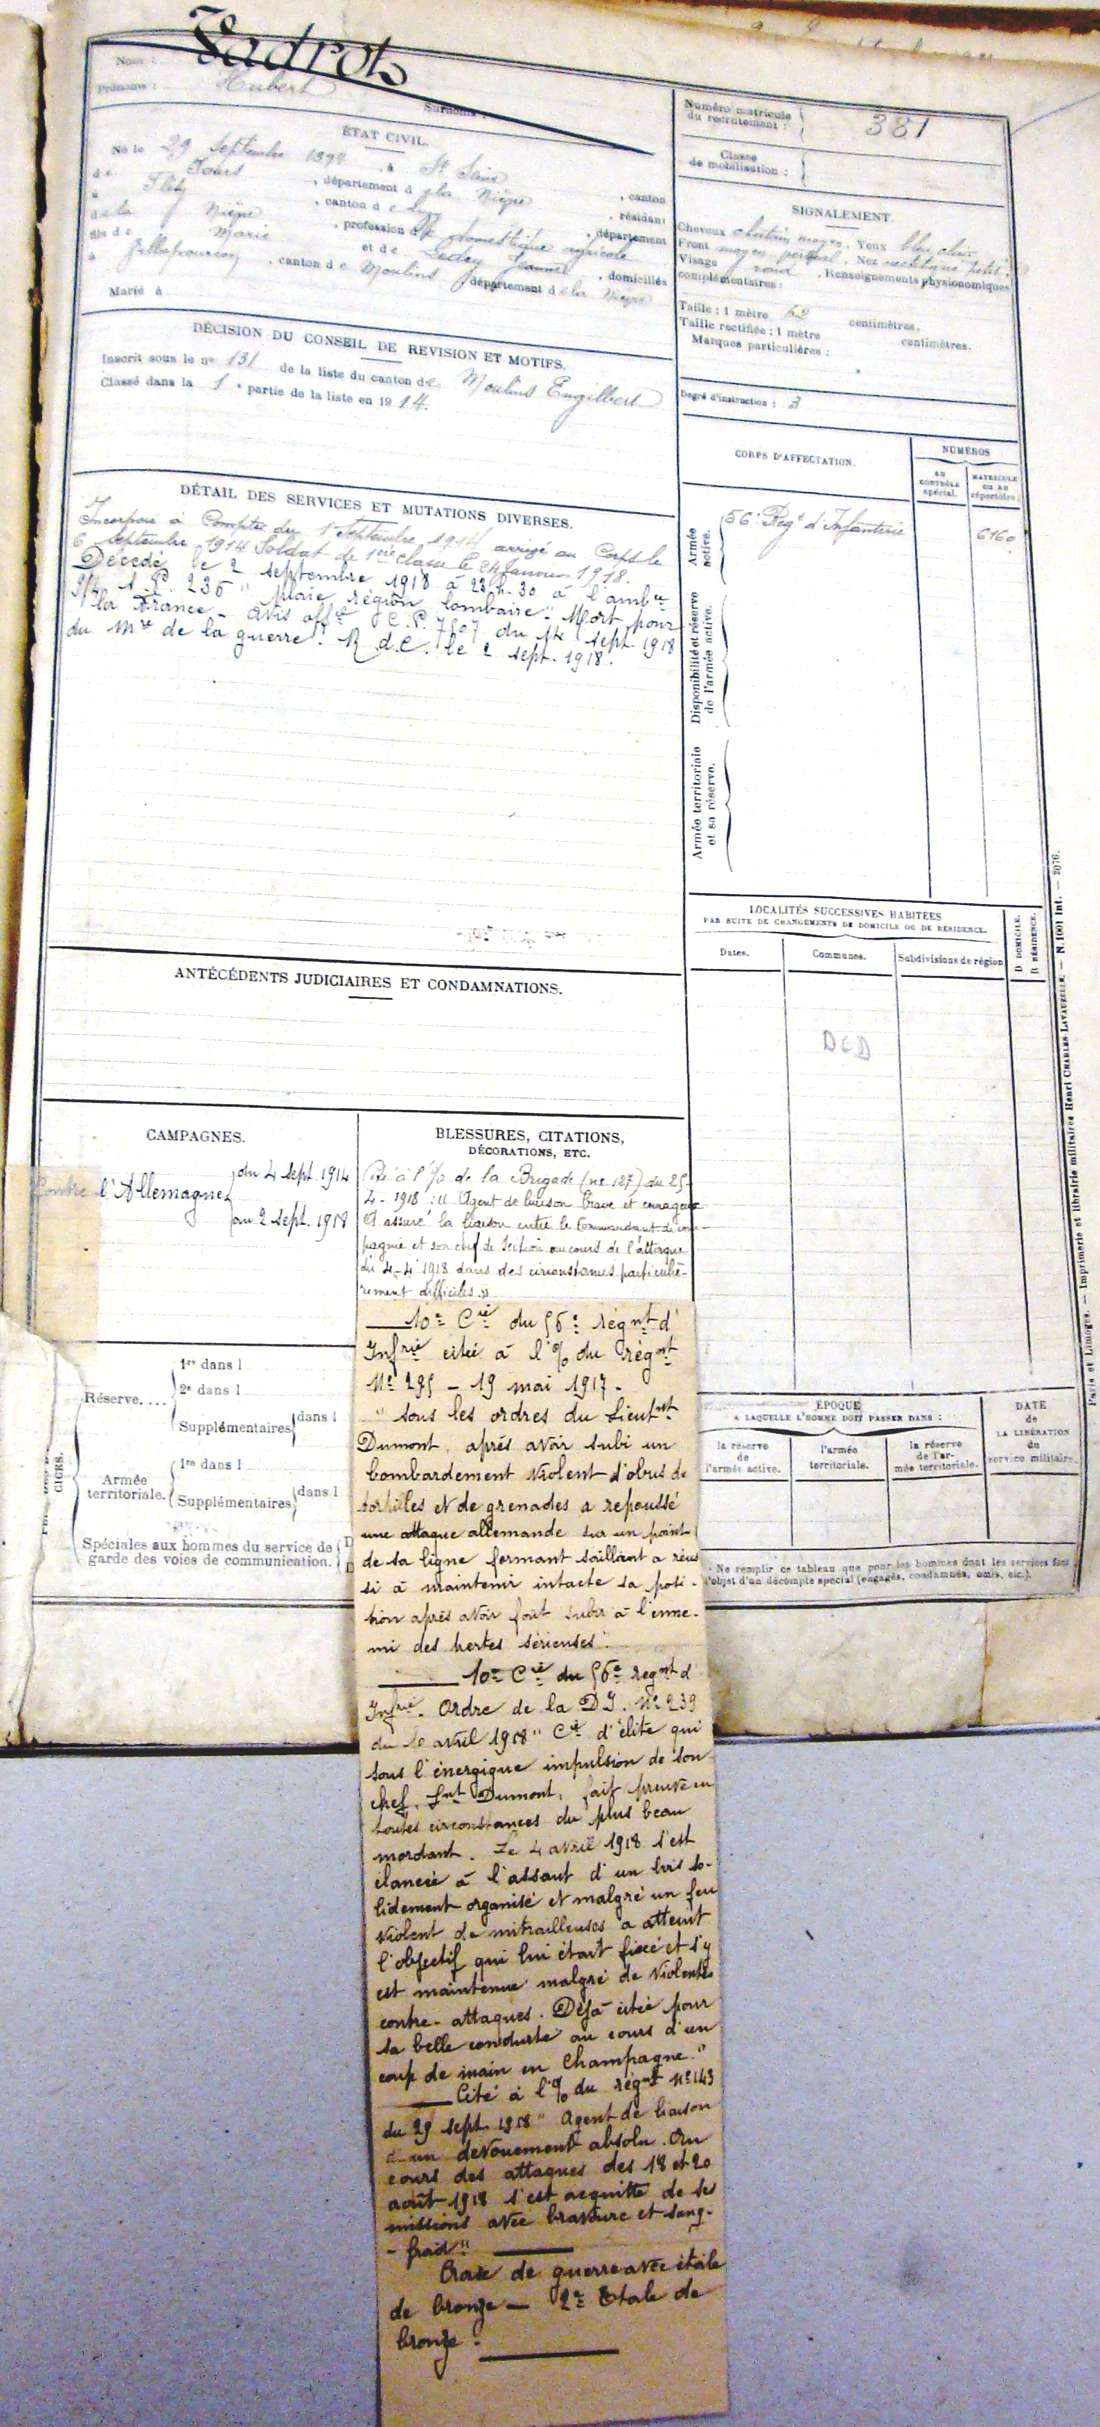 Nom :
Vadrot
Prénoms : Hubert
Surnoms :
ÉTAT CIVIL.
Né le 29 septembre 1894, à St
, département de la Nièvre, canton
de Fours, résidant
à Fléty, canton de Luzy, département
de la Nièvre, profession de domestique agricole
fils de Marie et de Jeanne, domiciliés
à Villapourçon, canton de Moulins, département de la Nièvre
Marié à
DÉCISION DU CONSEIL DE REVISION ET MOTIFS.
Inscrit sous le n° 131 de la liste du canton de Moulins Engilbert
Classé dans la 1e partie de la liste en 1914.
DÉTAIL DES SERVICES ET MUTATIONS DIVERSES.
Incorporé à Compter du 1 Septembre 1914 arrivé au Corps le
6 septembre 1914 Soldat de 1ère classe le 24 Janvier 1918.
Décédé le 2 septembre 1918 à 23 h. 30 à l'ambce
S.P. 236 "plaie région lombaire". Mort pour
la France - avis offel C.P. 7807 du 14 sept. 1918
du Mre de la guerre. R.d.C. le 2 sept. 1918.
ANTÉCÉDENTS JUDICIAIRES ET CONDAMNATIONS.
CAMPAGNES.
Contre l'Allemagne
du 4 sept 1914
au 2 sept. 1918
BLESSURES, CITATIONS,
DÉCORATIONS, ETC.
Cité à l'% de la Brigade (ne 127) du 25-
4-1918 : " Agent de liaison brave et courageux
A assuré la liaison entre le Commandant de com-
pagnie et son chef de section au cours de l'attaque
du 4-4 1918 dans des circonstances particuliè-
rement difficiles."
10e Cie du 56e Régnt d'
Infrie citée à l'% du Régnt
No 295 - 19 mai 1917 -
" sous les ordres du Lieutnt
Dumont, après avoir subi un
bombardement violent d'obus de
torpilles et de grenades a repoussé
une attaque allemande sur un point
de sa ligne formant saillant a réus
si à maintenir intacte sa posi-
tion après avoir fait subir à l'enne-
mi des pertes sérieuses".
10e Cie du 56e regnt d'
Infrie. Ordre de la D.I. No 239
du 10 avril 1918 " Cie d'élite qui
sous l'énergique impulsion de son
chef, Lnt Dumont, fait preuve en
toutes circonstances du plus beau
mordant. Le 4 avril 1918 s'est
élancée à l'assaut d'un bois so-
lidement organisé et malgré un feu
violent de mitrailleuses a atteint
l'objectif qui lui était fixé et s'y
est maintenue malgré de violentes
contre-attaques. Déjà citée pour
sa belle conduite au cours d'un
coup de main en Champagne."
Cité à l'% du régnt No 143
du 29 sept. 1918 " Agent de liaison
d'un dévouement absolu. Au
cours des attaques des 18 et 20
août 1918 s'est acquitté de ses
missions avec bravoure et sang-
-froid".
Croix de guerre avec étoile
de bronze - 2e Etoile de
bronze.
CICES.
Réserve....
1re dans l
2e dans l
Supplémentaires dans l
Armée
territoriale.
1re dans l
Supplémentaires dans l
Spéciales aux hommes du service de
garde des voies de communication.
Numéro matricule
du recrutement : 381
Classe
de mobilisation :
SIGNALEMENT.
Cheveux chatain moyen. Yeux bleu clair
Front moyen, Nez rectiligne petit
Visage rond. Renseignements physionomiques
complémentaires :
Taille : 1 mètre 62 centimètres.
Taille rectifiée : 1 mètre centimètres.
Marques particulières :
Degré d'instruction : 3
CORPS D'AFFECTATION.
NUMÉROS
AU
CONTRÔLE
spécial.
MATRICULE
OU AU
répertoire.
Armée
active.
56e Regt d'Infanterie
6160
Disponibilité et réserve
de l'armée active.
Armée territoriale
et sa réserve.
LOCALITÉS SUCCESSIVES HABITÉES
PAR SUITE DE CHANGEMENTS DE DOMICILE OU DE RÉSIDENCE.
Dates.
Communes.
Subdivisions de région
D DOMICILE.
R RÉSIDENCE.
DCD
ÉPOQUE
A LAQUELLE L'HOMME DOIT PASSER DANS :
la réserve
de
l'armée active.
l'armée
territoriale.
la réserve
de l'ar-
mée territoriale.
DATE
de
LA LIBÉRATION
du
service militaire.
Ne remplir ce tableau que pour les hommes dont les services font
l'objet d'un décompte spécial (engagés, condamnés, omis, etc.).
Paris et Limoges. — Imprimerie et librairie militaires Henri CHARLES-LAVAUZELLE. — N. 1001 Int. — 2076.